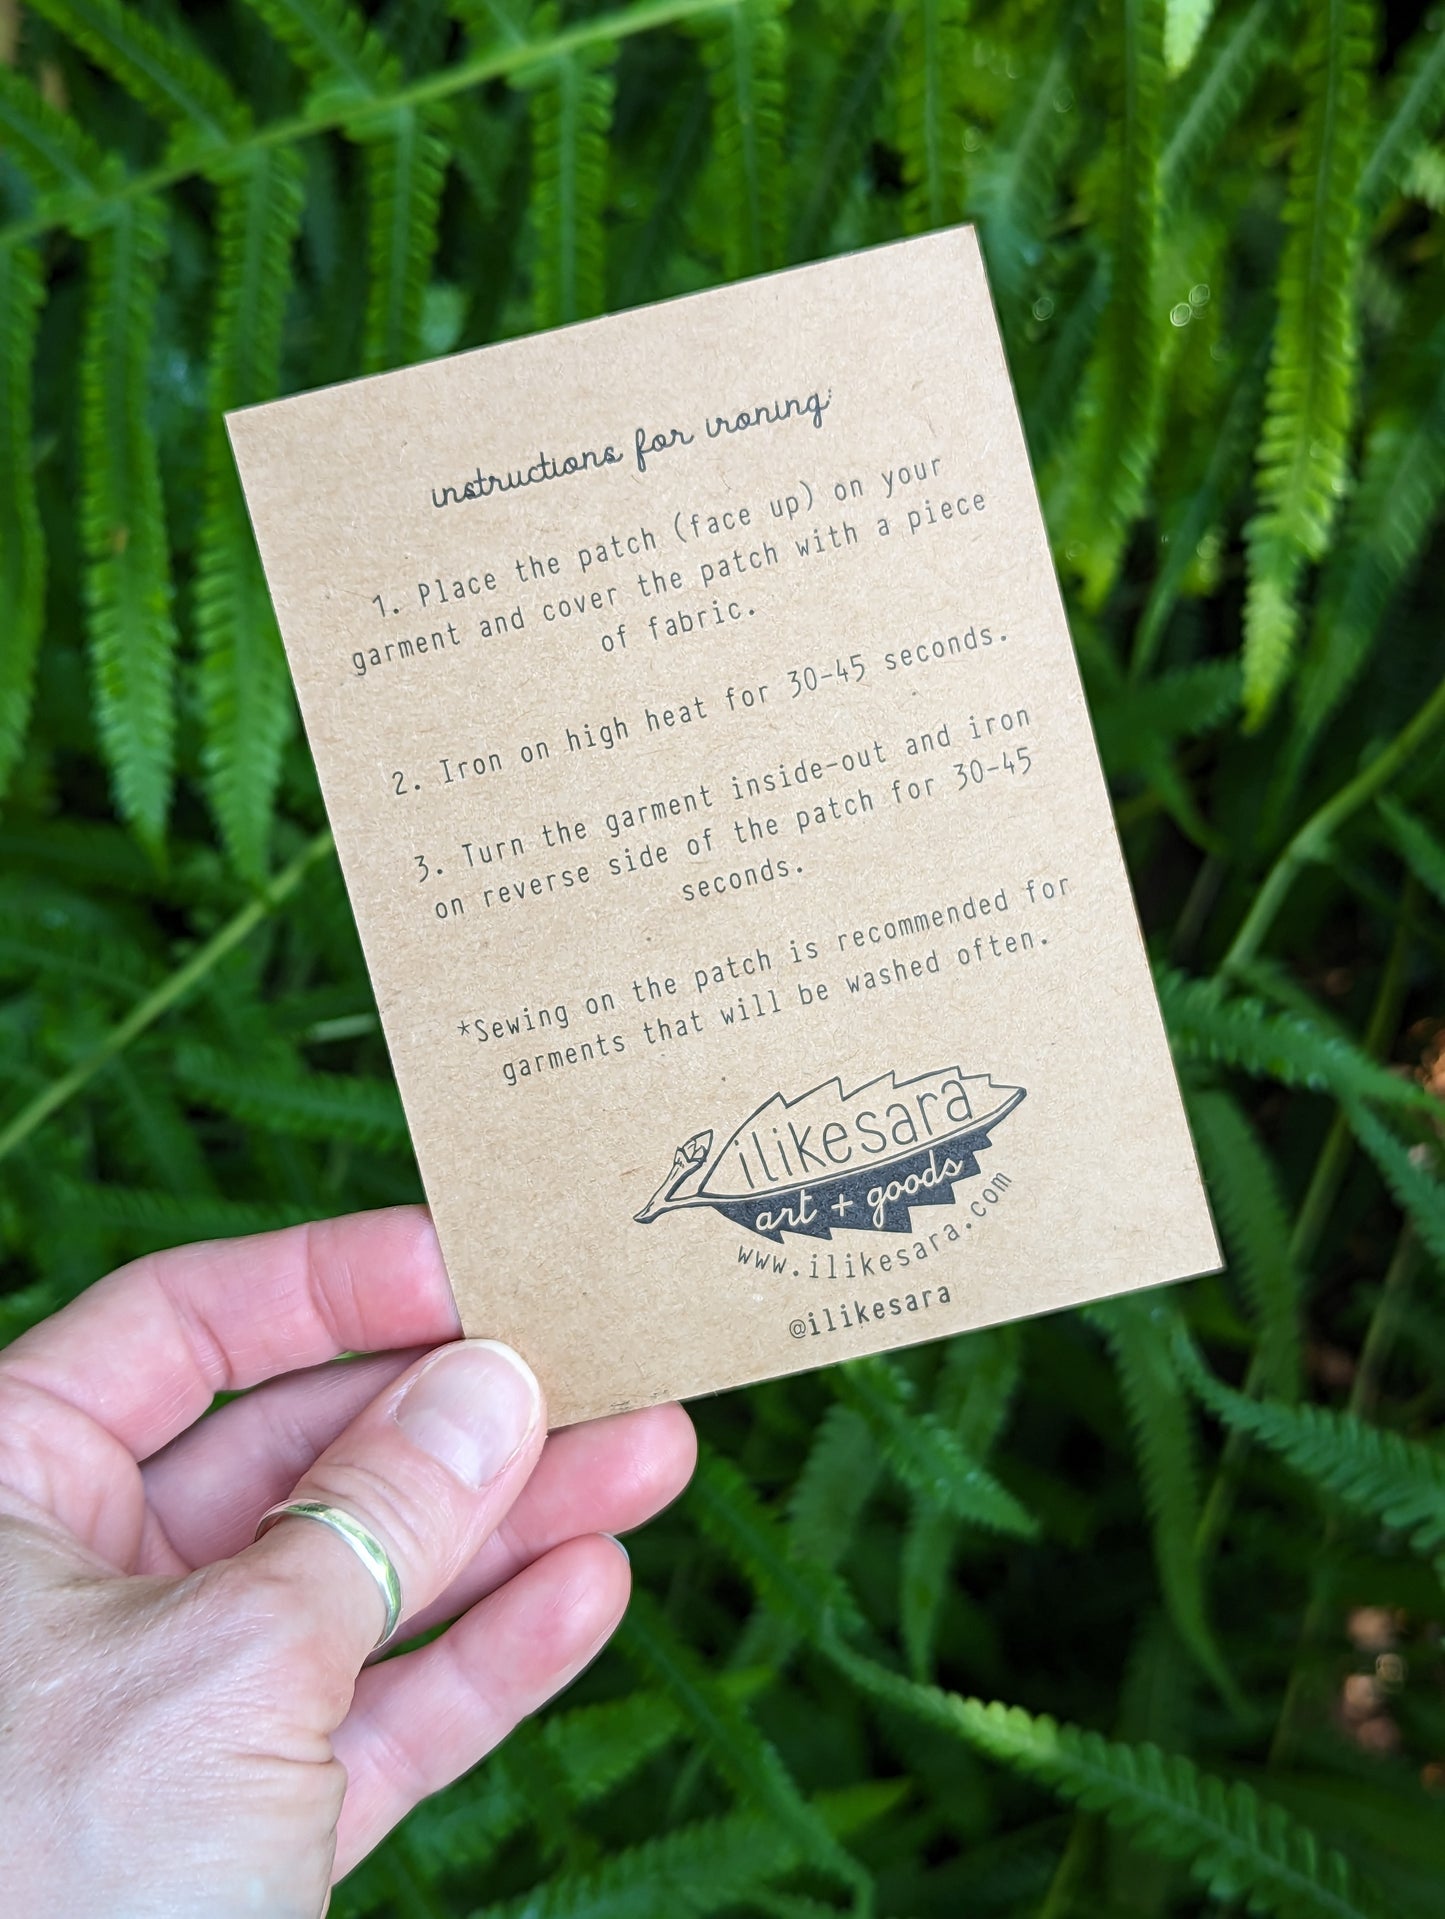 instructions for ironing:
1. Place the patch (face up) on your
garment and cover the patch with a piece
of fabric.
2. Iron on high heat for 30-45 seconds.
3. Turn the garment inside-out and iron
on reverse side of the patch for 30-45
seconds.
*Sewing on the patch is recommended for
garments that will be washed often.
ilikesara
art + goods
www.ilikesara.com
@ilikesara